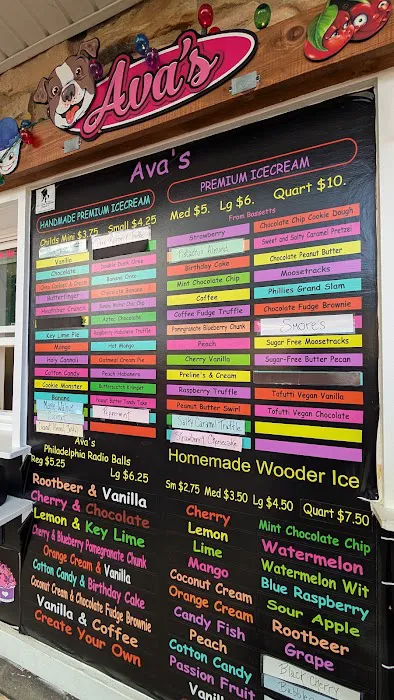 Ava's
Ava's
HANDMADE PREMIUM ICECREAM
Childs Mini $3.75 Small $4.25
Vanilla
Chocolate
Butterfinger
Key Lime Pie
Mango
Holy Cannoli
Cotton Candy
Cookie Monster
Banana
Cookie Dough Oreo
Banana Oreo
Chocolate Banana
Aztec Chocolate
Raspberry Habanero Truffle
Hot Mango
Oatmeal Cream Pie
Peach Habanero
Butterscotch Krimpet
Peanut Butter Tandy Take
Peppermint
PREMIUM ICECREAM
Med $5. Lg $6. Quart $10.
From Bassetts
Strawberry
Pistachio Almond
Birthday Cake
Mint Chocolate Chip
Coffee
Coffee Fudge Truffle
Pomegranate Blueberry Chunk
Peach
Cherry Vanilla
Praline's & Cream
Raspberry Truffle
Peanut Butter Swirl
Salty Caramel Truffle
Strawberry Cheesecake
Chocolate Chip Cookie Dough
Sweet and Salty Caramel Pretzel
Chocolate Peanut Butter
Moosetracks
Phillies Grand Slam
Chocolate Fudge Brownie
Smores
Sugar Free Moosetracks
Sugar-Free Butter Pecan
Tofutti Vegan Vanilla
Tofutti Vegan Chocolate
Ava's
Philadelphia Radio Balls
Reg $5.25 Lg $6.25
Rootbeer & Vanilla
Cherry & Chocolate
Lemon & Key Lime
Cherry & Blueberry Pomegranate Chunk
Orange Cream & Vanilla
Cotton Candy & Birthday Cake
Coconut Cream & Chocolate Fudge Brownie
Vanilla & Coffee
Create Your Own
Homemade Wooder Ice
Sm $2.75 Med $3.50 Lg $4.50 Quart $7.50
Cherry
Lemon
Lime
Mango
Coconut Cream
Orange Cream
Candy Fish
Peach
Cotton Candy
Passion Fruit
Vanilla
Mint Chocolate Chip
Watermelon
Watermelon Wit
Blue Raspberry
Sour Apple
Rootbeer
Grape
Black Cherry